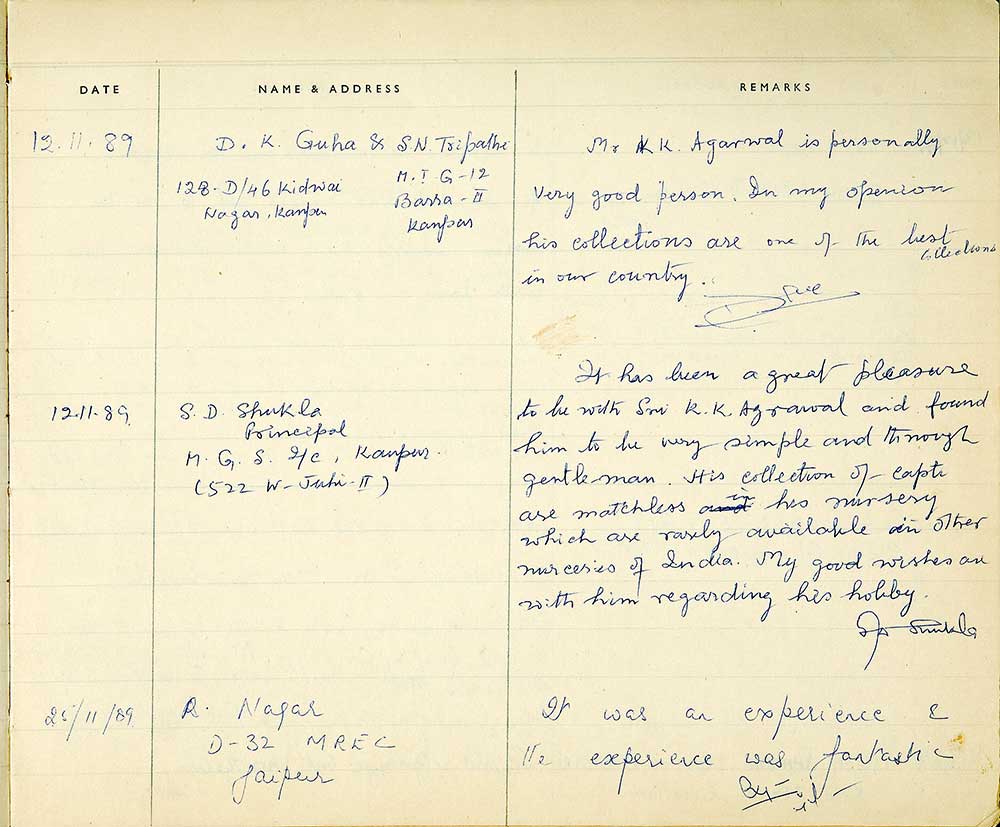 DATE NAME & ADDRESS REMARKS
12.11.89
D. K. Guha & S.N. Tripathi
128-D/46 Kidwai
Nagar, Kanpur
M.I G-12
Barra-II
Kanpur
Mr K.K. Agarwal is personally
very good person. In my openion
his collections are one of the best
collections
in our country.
12.11.89
S. D. Shukla
Principal
M. G. S. I/c, Kanpur.
(522 W-Juhi-II)
It has been a great pleasure
to be with Sri K. K. Agrawal and found
him to be very simple and through
gentleman. His collection of capti
are matchless in his nursery
which are rarely available in other
nurceries of India. My good wishes are
with him regarding his hobby.
Shukla
25/11/89
R. Nagar
D-32 MREC
Jaipur
It was an experience &
the experience was fantastic